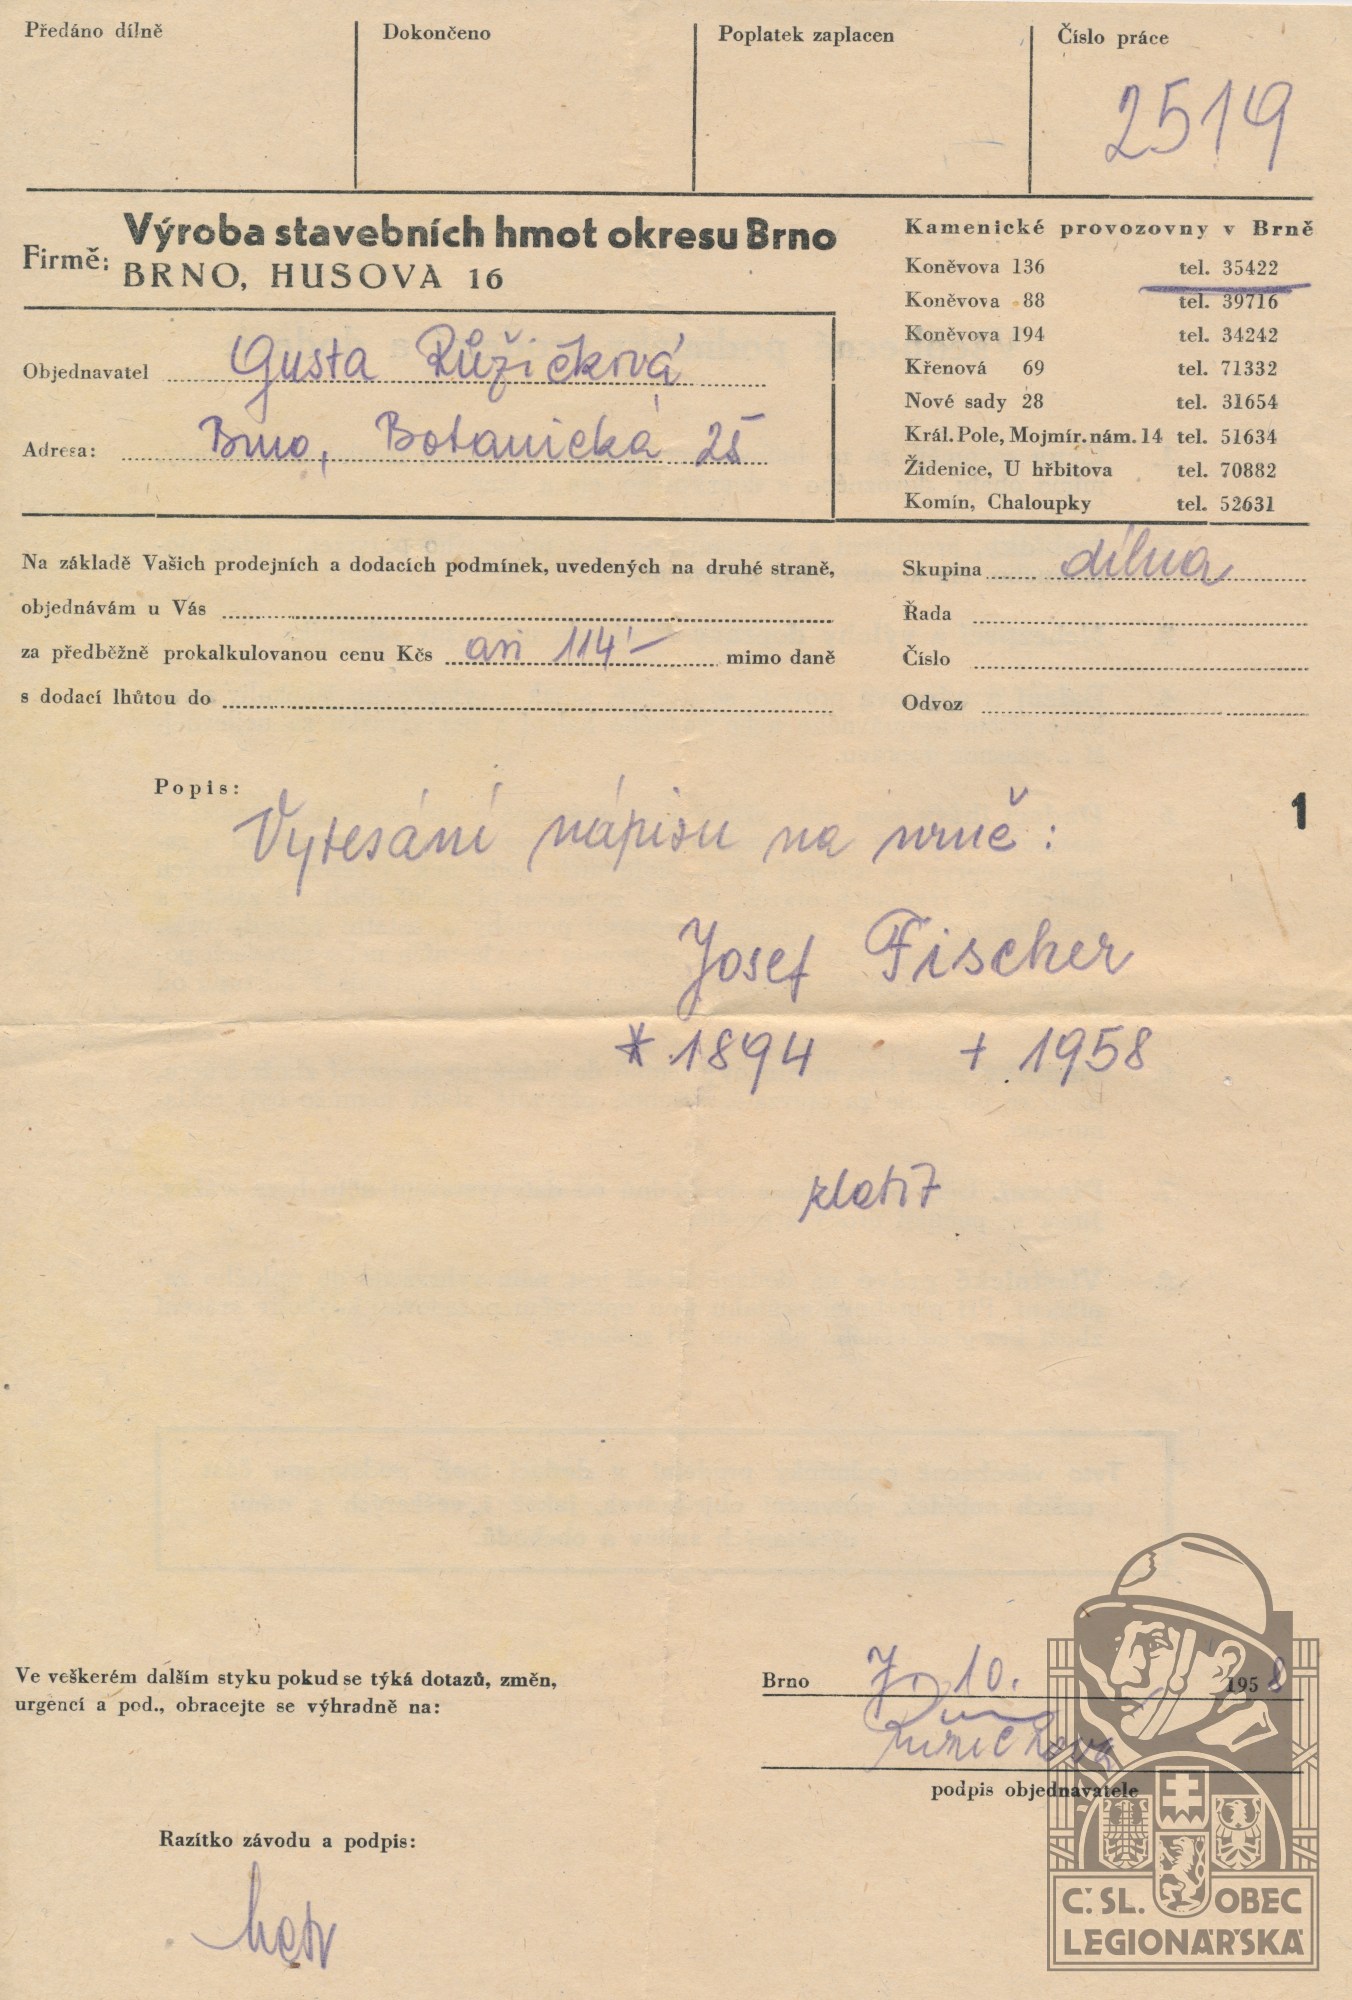 Předáno dílně
Dokončeno
Poplatek zaplacen
Číslo práce
2519
Firmě: Výroba stavebních hmot okresu Brno
BRNO, HUSOVA 16
Objednavatel Gusta Růžičková
Adresa: Brno, Botanická 25
Kamenické provozovny v Brně
Koněvova 136 tel. 35422
Koněvova 88 tel. 39716
Koněvova 194 tel. 34242
Křenová 69 tel. 71332
Nové sady 28 tel. 31654
Král. Pole, Mojmír. nám. 14 tel. 51634
Židenice, U hřbitova tel. 70882
Komín, Chaloupky tel. 52631
Na základě Vašich prodejních a dodacích podmínek, uvedených na druhé straně,
objednávám u Vás
za předběžně prokalkulovanou cenu Kčs asi 114'- mimo daně
s dodací lhůtou do
Skupina dílna
Řada
Číslo
Odvoz
Popis:
1
Vytesání nápisu na urně:
Josef Fischer
* 1894 + 1958
Ve veškerém dalším styku pokud se týká dotazů, změn,
urgencí a pod., obracejte se výhradně na:
Brno 7. 10. 1958
Růžičková
podpis objednavatele
Razítko závodu a podpis:
Č. SL. OBEC
LEGIONÁŘSKÁ